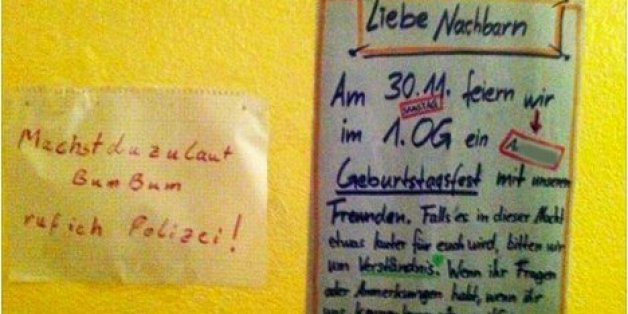 Machst du zu laut
Bum Bum
ruf ich Polizei!
Liebe Nachbarn
Am 30.11. feiern wir
SAMSTAG
im 1. OG ein
Geburtstagsfest mit unseren
Freunden. Falls es in dieser Nacht
etwas lauter für euch wird, bitten wir
um Verständnis. Wenn ihr Fragen
oder Anmerkungen habt, wenn ihr
uns